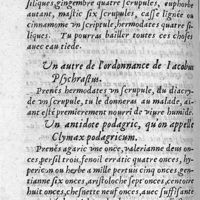 siliques, gingembre quatre scrupules, euphorbe
autant, mastic six scrupules, casse lignée ou
cinnamome vn scrupule, hermodates quatre si-
liques. Tu pourras bailler toutes ces choses
auec eau tiede.
Vn autre de l'ordonnance de Iacobus
Psychrastus.
Prenés hermodates vn scrupule, du diacry-
de vn scrupule, tu le donneras au malade, ai-
ant esté premierement nourri de viure humide.
Vn antidote podagric, qu'on appelle
Clymax podagricum.
Prenés agaric vne once, valerianne deus on-
ces, persil trois, fenoil erratic quatre onces, hy-
pericon en herbe a mille pertuis cinq onces, gen-
tienne six onces, aristoloche sept onces, centoire
huit onces, chesnette neuf onces, auec suffisante